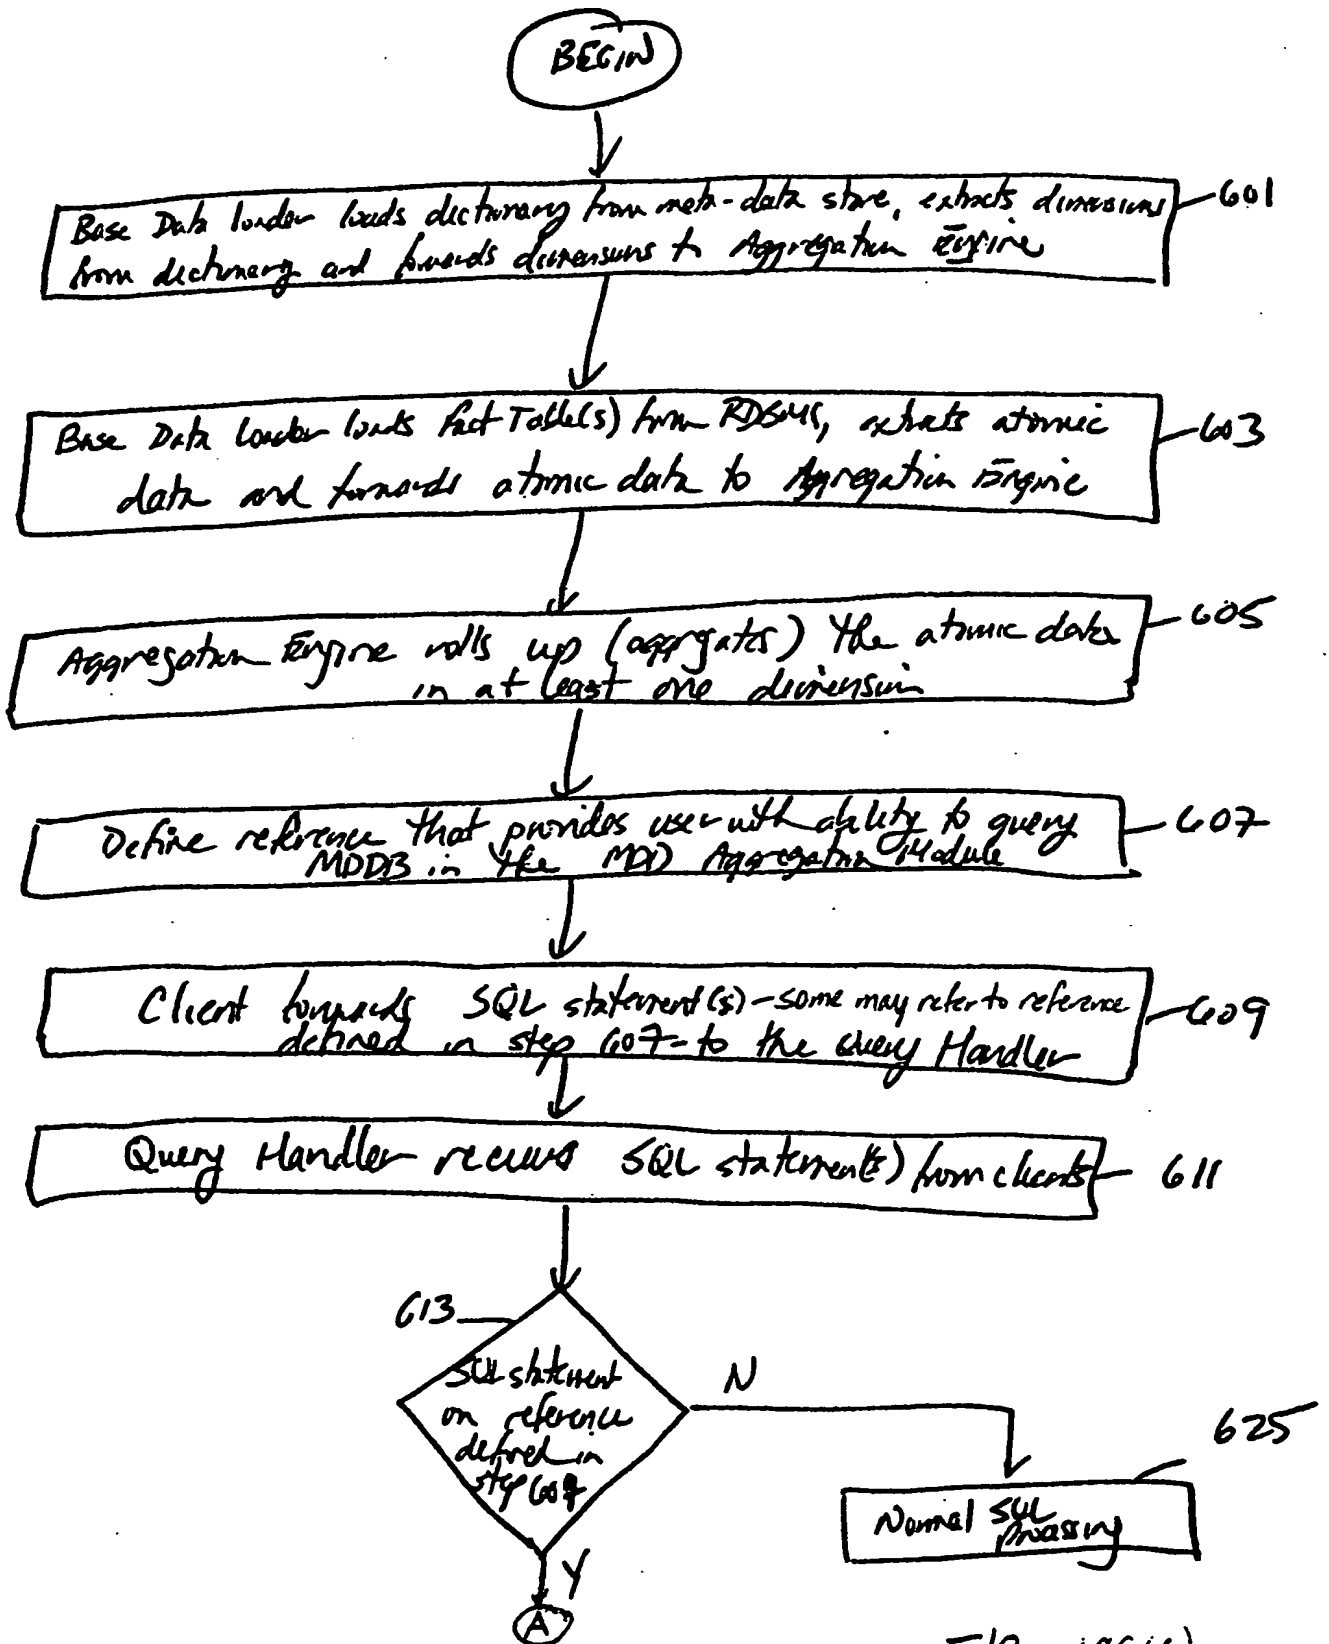 BEGIN
Base Data loader loads dictionary from meta-data store, extracts dimensions
from dictionary and forwards dimensions to Aggregation Engine
601
Base Data loader loads Fact Table(s) from RDBMS, extracts atomic
data and forwards atomic data to Aggregation Engine
603
Aggregation Engine rolls up (aggregates) the atomic data
in at least one dimension
605
Define reference that provides user with ability to query
MDDB in the MDD Aggregation Module
607
Client forwards SQL statement(s) - some may refer to reference
defined in step 607 - to the Query Handler
609
Query Handler receives SQL statement(s) from clients
611
613
SQL statement
on reference
defined in
step 607
N
625
Normal SQL
processing
Y
A